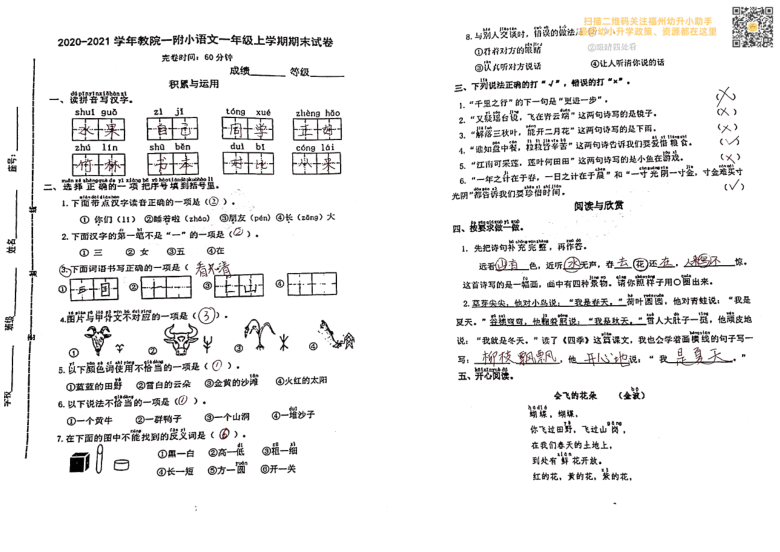 扫描二维码关注福州幼升小助手
幼升小升学政策、资源都在这里
2020-2021 学年教院一附小语文一年级上学期期末试卷
完卷时间：60 分钟
成绩 等级
座号：
姓名
班级
学校
积累与运用
一、读拼音写汉字。
shuǐ guǒ zì jǐ tóng xué zhèng hǎo
水果 自己 同学 正好
zhú lín shū běn duì bǐ cóng lái
竹林 书本 对比 从来
二、选择正确的一项把序号填到括号里。
1. 下面带点汉字读音正确的一项是（②）。
①你们（li） ②睡着啦（zháo） ③朋友（pén） ④长（zǎng）大
2. 下面汉字的第一笔不是“一”的一项是（②）。
①三 ②女 ③五 ④在
③.下面词语书写正确的一项是（看不清
① ② ③ ④
4.图片与部件不对应的一项是（③）。
① ② ③ ④
5. 以下颜色词使用不恰当的一项是（①）。
①蓝蓝的田野 ②雪白的云朵 ③金黄的沙滩 ④火红的太阳
6. 以下说法不恰当的一项是（①）。
①一个黄牛 ②一群鸭子 ③一个山洞 ④一堆沙子
7. 在下面的图中不能找到的反义词是（⑥）。
①黑一白 ②高一低 ③粗一细
④长一短 ⑤方一圆 ⑥开一关
8. 与别人交谈时，错误的做法
①看着对方的眼睛 ②
③认真听对方说话 ④让人听清你说的话
三、下列说法正确的打“√”，错误的打“×”。
1. “千里之行”的下一句是“更进一步”。（×）
2. “又疑瑶台镜，飞在青云端”这两句诗写的是镜子。（×）
3. “解落三秋叶，能开二月花”这两句诗写的是下雨。（×）
4. “谁知盘中餐，粒粒皆辛苦”这两句诗告诉我们要爱惜粮食。（√）
5. “江南可采莲，莲叶何田田”这两句诗写的是小鱼在游戏。（×）
6. “一年之计在于春，一日之计在于晨”和“一寸光阴一寸金，寸金难买寸
光阴”都告诉我们要珍惜时间。（√）
阅读与欣赏
四、按要求做一做。
1. 先把诗句补充完整，再作答。
远看山有色，近听水无声，春去花还在，人来鸟不惊。
这首诗写的是一幅画，画中有四种景物。请你照样子用○圈出来。
2. 草芽尖尖，他对小鸟说：“我是春天。”荷叶圆圆，他对青蛙说：“我是
夏天。”谷穗弯弯，他鞠着躬说：“我是秋天。”雪人大肚子一挺，他顽皮地
说：“我就是冬天。”读了《四季》这篇课文，我也会学着画横线的句子写一
写：柳枝飘飘，他开心地说：“我是夏天。”
五、开心阅读。
会飞的花朵 （金波）
蝴蝶，蝴蝶，
你飞过田野，飞过山岗，
在我们春天的土地上，
到处有鲜花开放。
红的花，黄的花，紫的花，